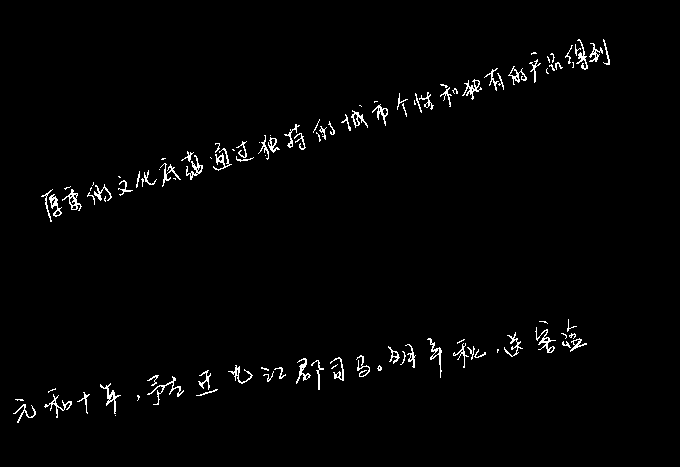 厚重的文化底蕴通过独特的城市个性和独有的产品得到
元和十年,予左迁九江郡司马。明年秋,送客湓